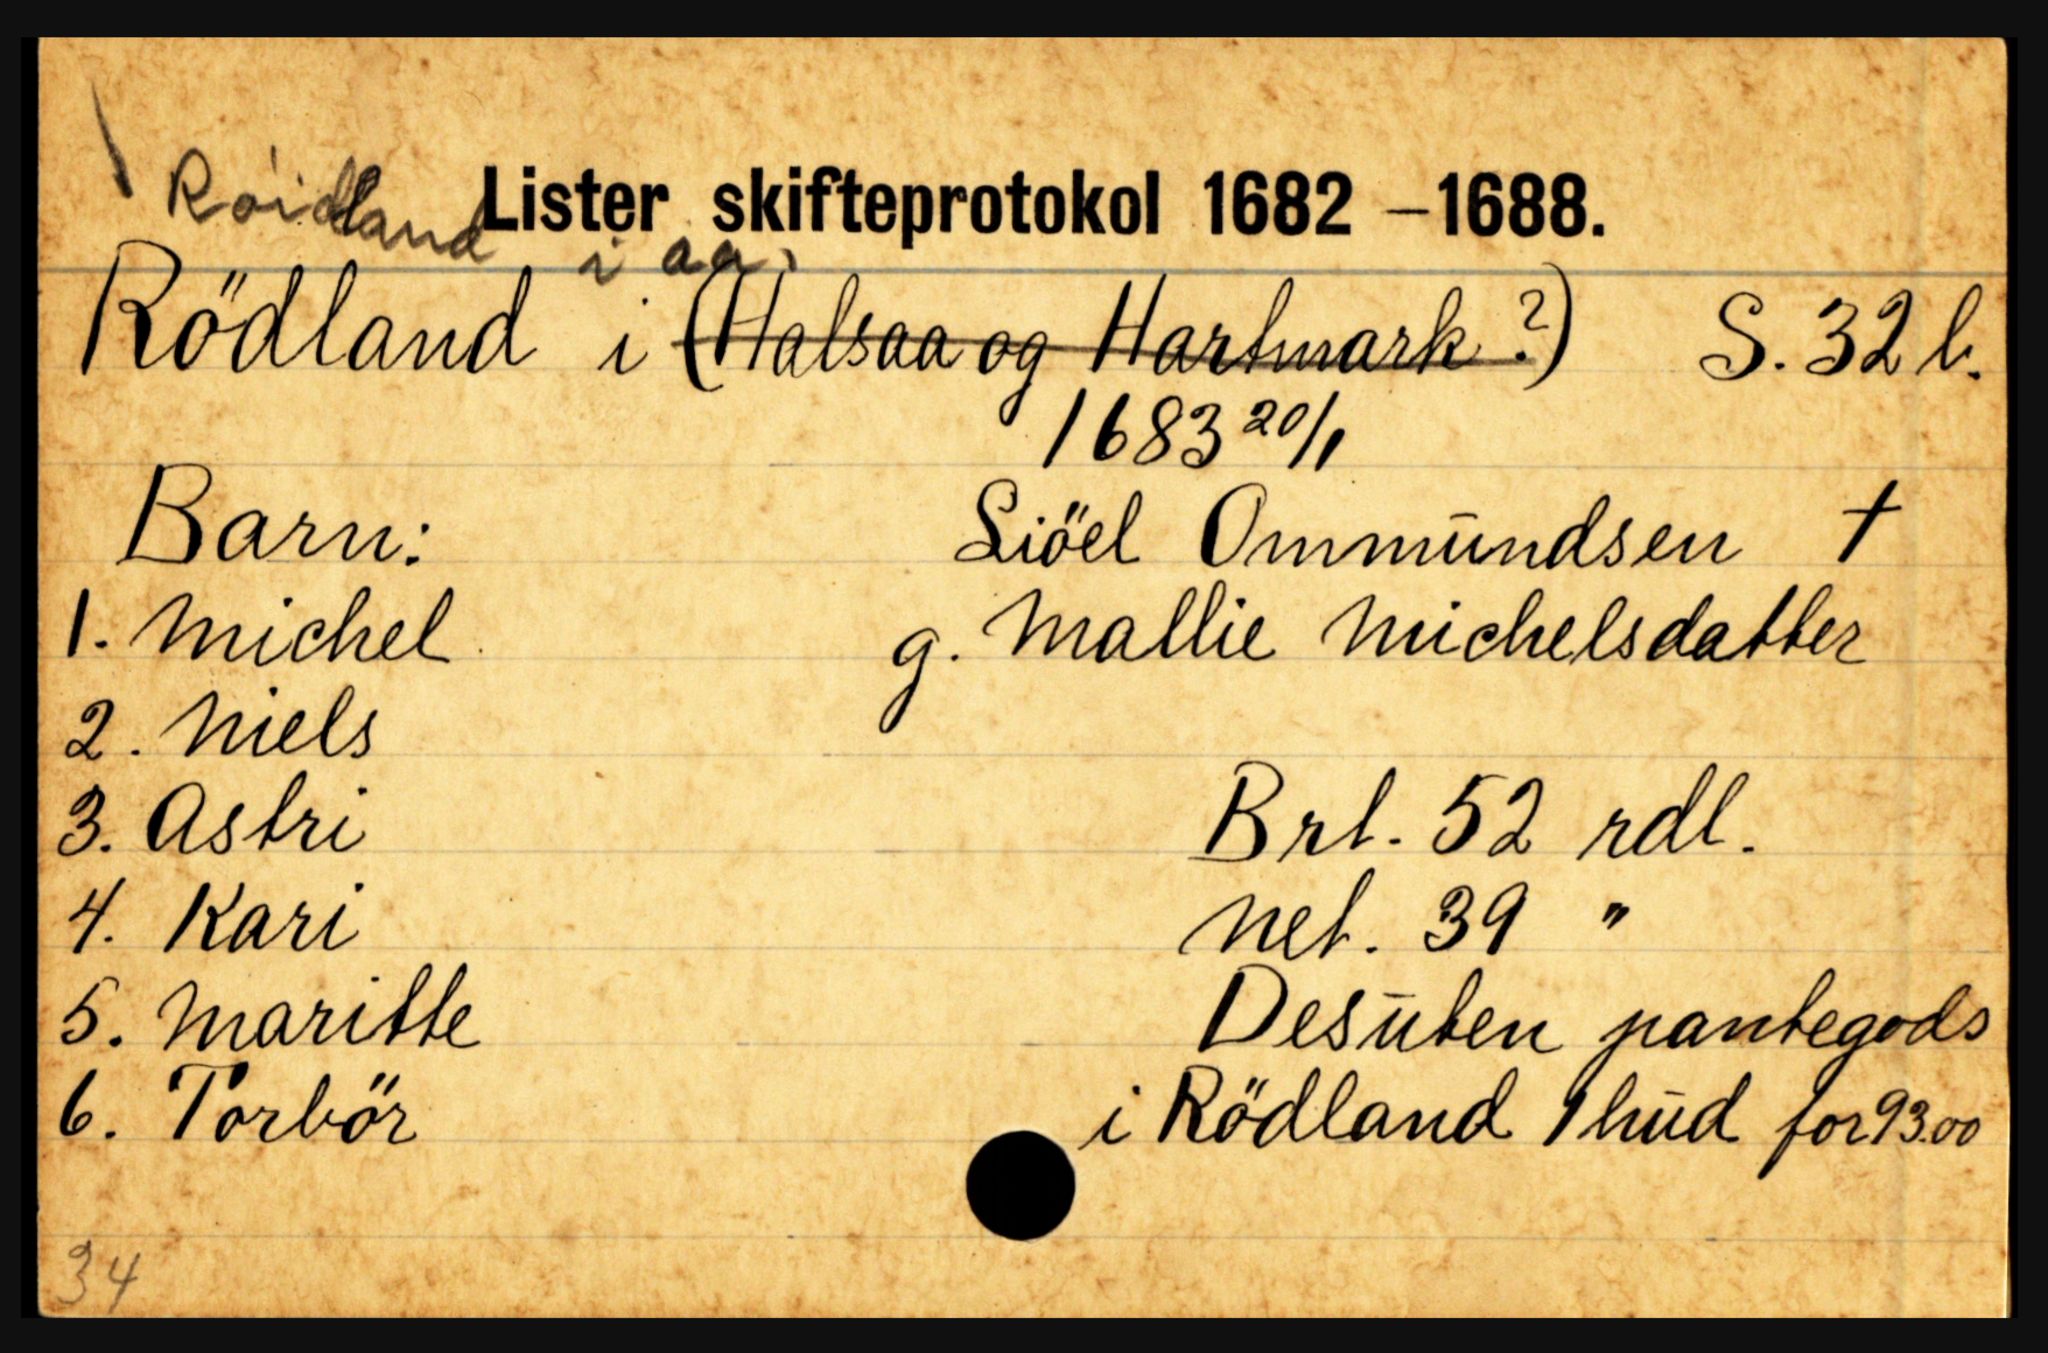 Lister skifteprotokol 1682 – 1688.
Röidland i aa.
Rödland i (Halsaa og Hartmark?) S. 32 b.
1683 20/1
Barn: Siöel Ommundsen †
1. Michel g. Mallie Michelsdatter
2. Niels
3. Astri Brt. 52 rdl.
4. Kari Net. 39 "
5. Maritte Desuten pantegods
6. Torbör i Rödland 1 hud for 93.00
34